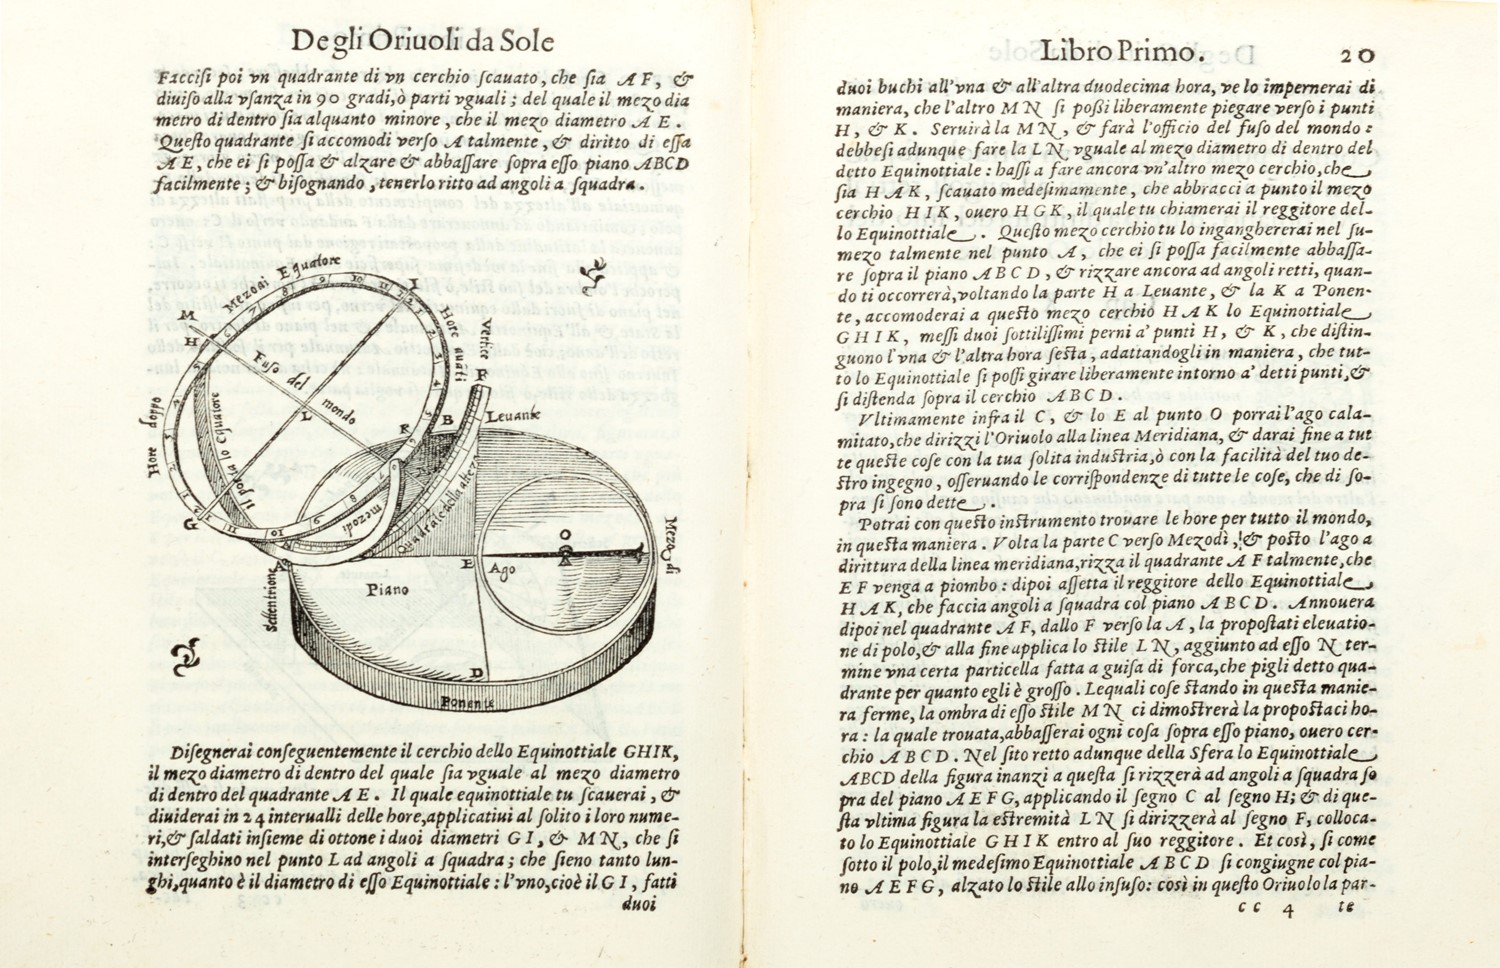 Degli Oriuoli da Sole
Facciſi poi vn quadrante di vn cerchio ſcauato, che ſia A F, &
diuiſo alla vſanza in 90 gradi, ò parti vguali; del quale il mezo dia
metro di dentro ſia alquanto minore, che il mezo diametro A E.
Queſto quadrante ſi accomodi verſo A talmente, & diritto di eſſa
A E, che ei ſi poſſa & alzare & abbaſſare ſopra eſſo piano ABCD
facilmente; & biſognando, tenerlo ritto ad angoli a ſquadra.
Mezodi Equatore
Hore auāti
Vertice F
M
H
I
Fuso del mondo
L
Hore doppo
Il porta lo equatore
K
B
Leuante
Quadrāte della altezza
mezodi
G
A
Settentrione
Piano
E
Ago
O
Mezo di
D
Ponente
7 8 9 10 11 12
Diſegnerai conſeguentemente il cerchio dello Equinottiale GHIK,
il mezo diametro di dentro del quale ſia vguale al mezo diametro
di dentro del quadrante A E. Il quale equinottiale tu ſcauerai, &
diuiderai in 24 interualli delle hore, applicatiui al ſolito i loro nume-
ri, & ſaldati inſieme di ottone i duoi diametri G I, & M N, che ſi
interſeghino nel punto L ad angoli a ſquadra; che ſieno tanto lun-
ghi, quanto è il diametro di eſſo Equinottiale: l'vno, cioè il G I, fatti
duoi
Libro Primo. 20
duoi buchi all'vna & all'altra duodecima hora, ve lo impernerai di
maniera, che l'altro M N ſi poßi liberamente piegare verſo i punti
H, & K. Seruirà la M N, & farà l'officio del fuſo del mondo:
debbeſi adunque fare la L N vguale al mezo diametro di dentro del
detto Equinottiale: haſſi a fare ancora vn'altro mezo cerchio, che
ſia H A K, ſcauato medeſimamente, che abbracci a punto il mezo
cerchio H I K, ouero H G K, il quale tu chiamerai il reggitore del-
lo Equinottiale. Queſto mezo cerchio tu lo inganghererai nel ſu-
mezo talmente nel punto A, che ei ſi poſſa facilmente abbaſſa-
re ſopra il piano A B C D, & rizzare ancora ad angoli retti, quan-
do ti occorrerà, voltando la parte H a Leuante, & la K a Ponen-
te, accomoderai a queſto mezo cerchio H A K lo Equinottiale
G H I K, meſſi duoi ſottiliſſimi perni a' punti H, & K, che diſtin-
guono l'vna & l'altra hora ſeſta, adattandogli in maniera, che tut-
to lo Equinottiale ſi poſſi girare liberamente intorno a' detti punti, &
ſi diſtenda ſopra il cerchio A B C D.
Vltimamente infra il C, & lo E al punto O porrai l'ago cala-
mitato, che dirizzi l'Oriuolo alla linea Meridiana, & darai fine a tut
te queſte coſe con la tua ſolita induſtria, ò con la facilità del tuo de-
ſtro ingegno, oſſeruando le corriſpondenze di tutte le coſe, che di ſo-
pra ſi ſono dette.
Potrai con queſto inſtrumento trouare le hore per tutto il mondo,
in queſta maniera. Volta la parte C verſo Mezodì, & poſto l'ago a
dirittura della linea meridiana, rizza il quadrante A F talmente, che
E F venga a piombo: dipoi aſſetta il reggitore dello Equinottiale
H A K, che faccia angoli a ſquadra col piano A B C D. Annouera
dipoi nel quadrante A F, dallo F verſo la A, la propoſtati eleuatio-
ne di polo, & alla fine applica lo ſtile L N, aggiunto ad eſſo N ter-
mine vna certa particella fatta a guiſa di forca, che pigli detto qua-
drante per quanto egli è groſſo. Lequali coſe ſtando in queſta manie-
ra ferme, la ombra di eſſo ſtile M N ci dimoſtrerà la propoſtaci ho-
ra: la quale trouata, abbaſſerai ogni coſa ſopra eſſo piano, ouero cer-
chio A B C D. Nel ſito retto adunque della Sfera lo Equinottiale
ABCD della figura inanzi a queſta ſi rizzerà ad angoli a ſquadra ſo
pra del piano A E F G, applicando il ſegno C al ſegno H; & di que-
ſta vltima figura la eſtremità L N ſi dirizzerà al ſegno F, colloca-
to lo Equinottiale G H I K entro al ſuo reggitore. Et così, ſi come
ſotto il polo, il medeſimo Equinottiale A B C D ſi congiugne col pia-
no A E F G, alzato lo ſtile allo inſuſo: così in queſto Oriuolo la par-
cc 4 te